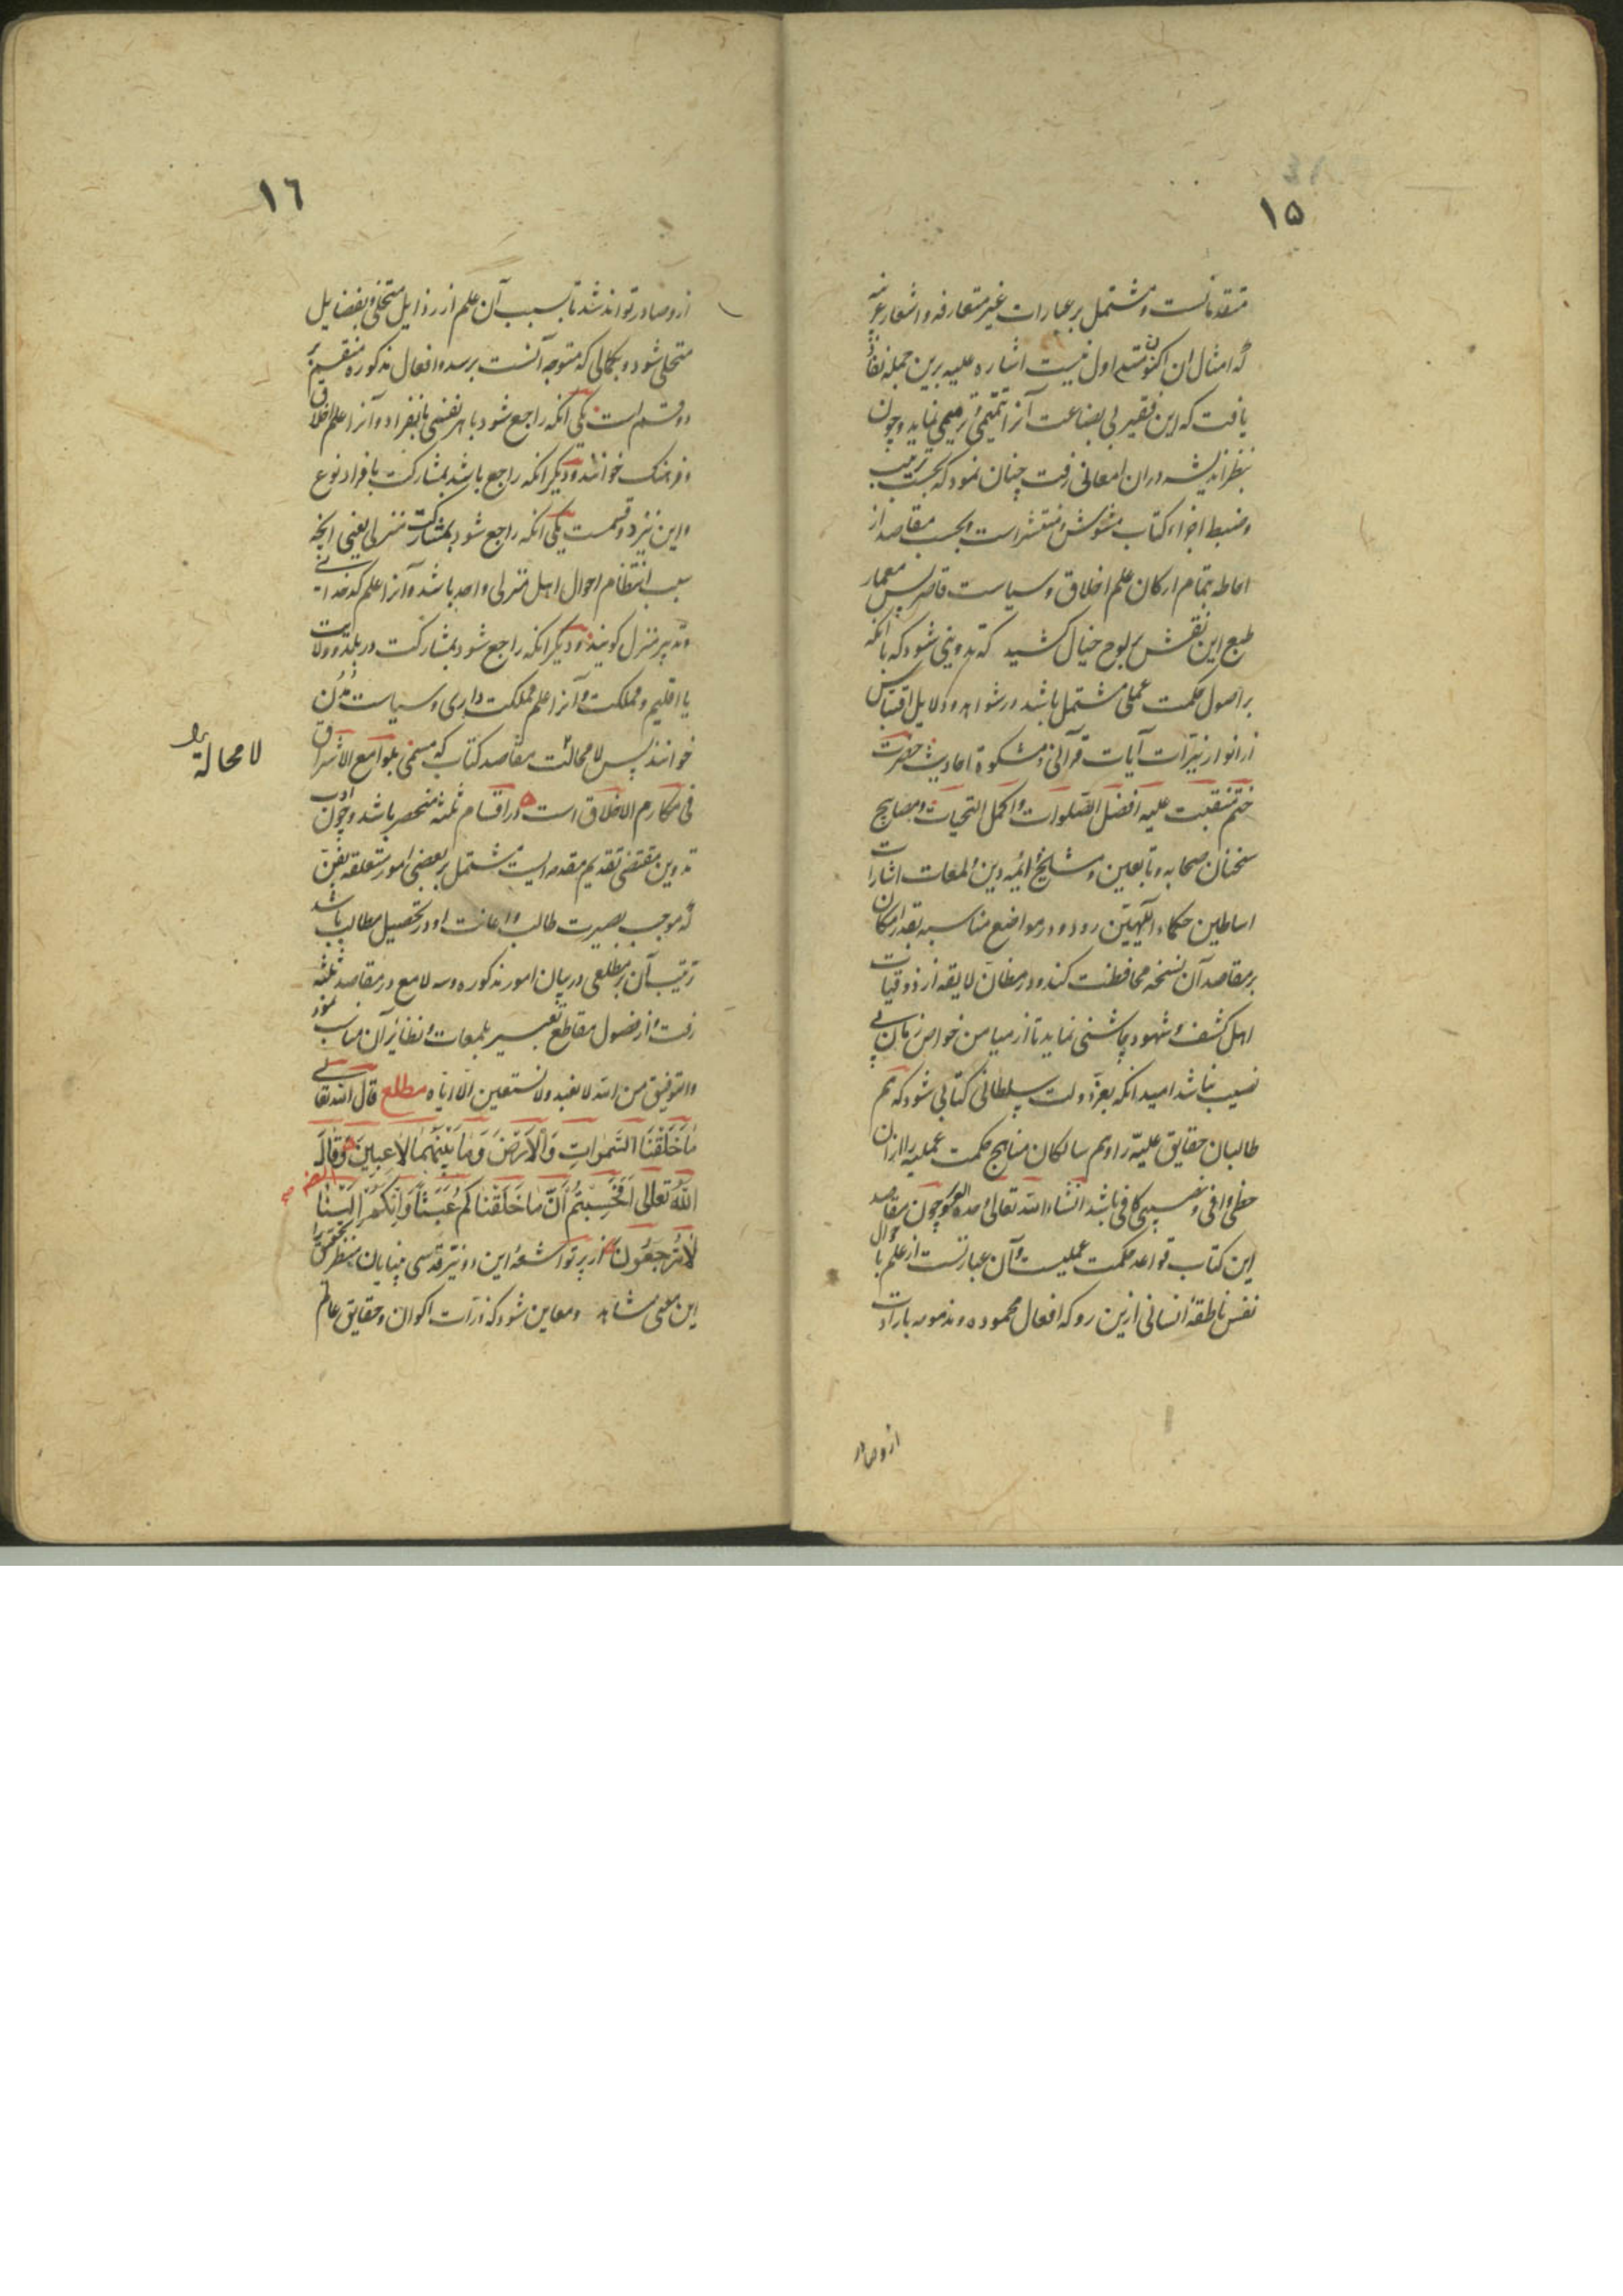 ۱۵
متقدمانست و مشتمل بر عبارات غیر متعارفه و اشعار عربیه
که امثال ان اکنون متداول نیست اشاره علیه برین جمله نفاذ
یافت که این فقیر بی بضاعت آنرا تتمیمی و ترمیمی نماید و چون
بنظر اندیشه دران امعانی رفت چنان نمود که بحسب ترتیب
و ضبط اجزاء کتاب مشوش و منتشر است و بحسب مقاصد از
احاطه بتمام ارکان علم اخلاق و سیاست قاصر پس معمار
طبع این نقش بر لوح خیال کشید که تدوینی شود که با انکه
بر اصول حکمت عملی مشتمل باشد در شواهد و دلایل اقتباس
از انوار نیرات آیات قرآنی و مشکوة احادیث حضرت
ختم منقبت علیه افضل الصلوات و اکمل التحیات و مصابیح
سخنان صحابه و تابعین و مشایخ و ائمه دین و لمعات اشارات
اساطین حکماء الهیین رود و در مواضع مناسبه بقدر امکان
بر مقاصد آن نسخه محافظت کند و در مظان لایقه از ذوقیات
اهل کشف و شهود چاشنی نماید تا از میامن خواص زمان بی
نصیب نباشد امید انکه بعز دولت سلطانی کتابی شود که هم
طالبان حقایق علیه را و هم سالکان مناهج حکمت عملیه را ازان
حظی وافی و نصیبی کافی باشد انشاء الله تعالی وحده العزیز و چون مقاصد
این کتاب قواعد حکمت عملیست و آن عبارتست از علم باحوال
نفس ناطقه انسانی ازین رو که افعال محموده و مذمومه بارادت
ازو صادر
۱٦
ازو صادر تواند شد تا بسبب آن علم از رذایل متخلی و بفضایل
متحلی شود و بکمالی که متوجه آنست برسد و افعال مذکوره منقسم بر
دو قسم است یکی انکه راجع شود با هر نفسی بانفراد و آنرا علم اخلاق
و فرهنک خوانند و دیکر انکه راجع باشد بمشارکت با افراد نوع
و این نیز دو قسمت یکی انکه راجع شود بمشارکت منزلی یعنی انچه
سبب انتظام احوال اهل منزلی واحد باشد و آنرا علم کدخدائی
و تدبیر منزل کویند و دیکر انکه راجع شود بمشارکت در بلد و ولایت
یا اقلیم و مملکت و آنرا علم مملکت داری و سیاست مدن
خوانند پس لا محالت مقاصد کتاب که مسمی بلوامع الاشراق
لا محالة
فی مکارم الاخلاق است در اقسام ثلثه منحصر باشد و چون ادب
تدوین مقتضی تقدیم مقدمه ایست مشتمل بر بعضی امور متعلقه بفن
که موجب بصیرت طالب و اعانت او در تحصیل مطالب باشد
ترتیب آن بر مطلعی در بیان امور مذکوره و سه لامع در مقاصد ثلثه
رفت و از فصول مقاطع تعبیر بلمعات و نظائر آن مناسب نمود
والتوفیق من الله لا نعبد ولا نستعین الا ایاه مطلع قال الله تعالی
مَا خَلَقْنَا السَّمٰواتِ وَالْاَرْضَ وَمَا بَیْنَهُمَا لَاعِبِینَ وَقَالَ
اللّٰهُ تَعَالٰی اَفَحَسِبْتُمْ اَنَّ مَا خَلَقْنَاکُمْ عَبَثًا وَاَنَّکُمْ اِلَیْنَا
لَا تُرْجَعُونَ از پرتو اشعه این دو نیر قدسی بینایان منظر تحقیق را
این معنی مشاهد و معاین شود که ذرات اکوان و حقایق عالم